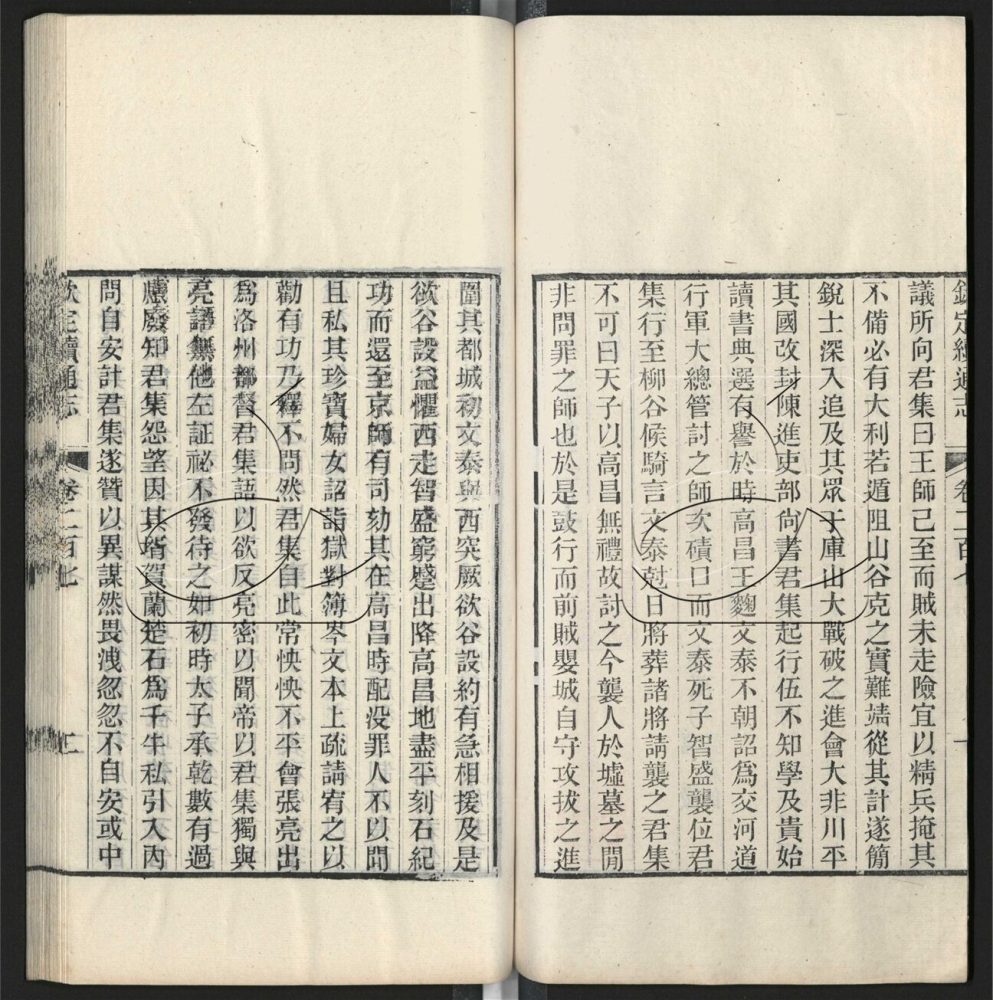 議所向君集曰王師己至而賊未走險宜以精兵掩其
不備必有大利若遁阻山谷克之實難靖從其計遂簡
銳士深入追及其眾于庫山大戰破之進會大非川平
其國改封陳進吏部尙書君集起行伍不知學及貴始
讀書典選有譽於時高昌王麴文泰不朝詔爲交河道
行軍大總管討之師次磧口而文泰死子智盛襲位君
集行至柳谷候騎言文泰尅日將葬諸將請襲之君集
不可曰天子以高昌無禮故討之今襲人於墟墓之閒
非問罪之師也於是鼓行而前賊嬰城自守攻拔之進
圍其都城初文泰與西突厥欲谷設約有急相援及是
欲谷設益懼西走智盛窮蹙出降高昌地盡平刻石紀
功而還至京師有司劾其在高昌時配没罪人不以聞
且私其珍寶婦女詔詣獄對簿岑文本上疏請宥之以
勸有功乃釋不問然君集自此常怏怏不平會張亮出
爲洛州都督君集語以欲反亮密以聞帝以君集獨與
亮語無他左証祕不發待之如初時太子承乾數有過
慮廢知君集怨望因其壻賀蘭楚石爲千牛私引入內
問自安計君集遂贊以異謀然畏洩忽忽不自安或中
欽定續通志 卷二百七 二